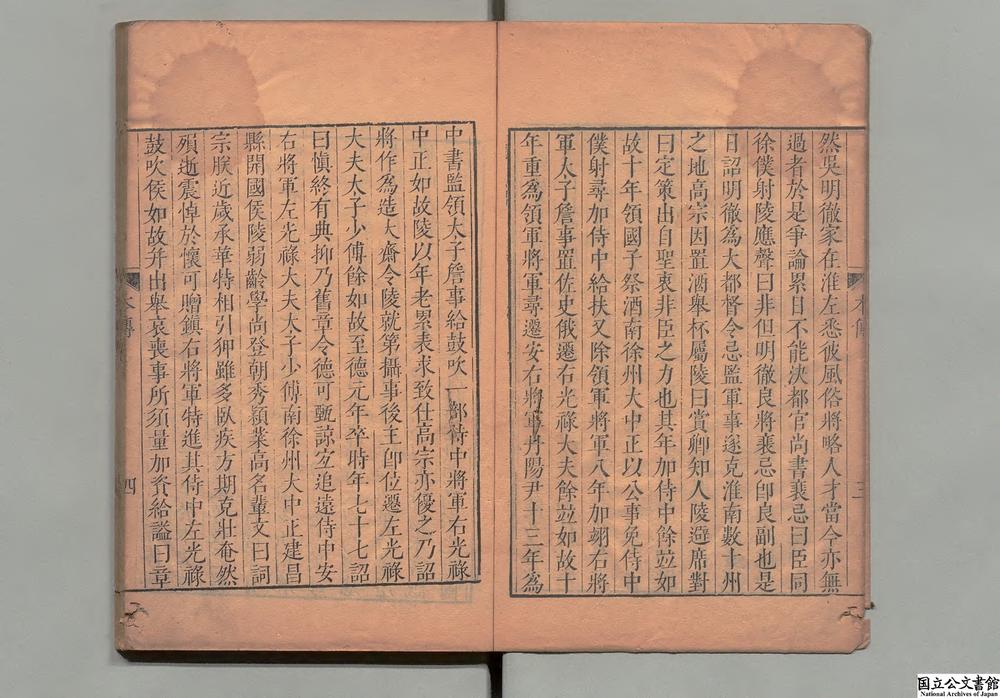 然吳明徹家在淮左悉彼風俗將略人才當今亦無
過者於是爭論累日不能決都官尚書裴忌曰臣同
徐僕射陵應聲曰非但明徹良將裴忌卽良副也是
日詔明徹為大都督令忌監軍事遂克淮南數十州
之地高宗因置酒舉杯屬陵曰賞卿知人陵避席對
曰定策出自聖衷非臣之力也其年加侍中餘竝如
故十年領國子祭酒南徐州大中正以公事免侍中
僕射尋加侍中給扶又除領軍將軍八年加翊右將
軍太子詹事置佐史俄遷右光祿大夫餘竝如故十
年重為領軍將軍尋遷安右將軍丹陽尹十三年為
本傳
三
中書監領太子詹事給鼓吹一部侍中將軍右光祿
中正如故陵以年老累表求致仕高宗亦優之乃詔
將作為造大齋令陵就第攝事後主卽位遷左光祿
大夫太子少傅餘如故至德元年卒時年七十七詔
曰愼終有典抑乃舊章令德可甄諒宜追遠侍中安
右將軍左光祿大夫太子少傅南徐州大中正建昌
縣開國侯陵弱齡學尚登朝秀穎業高名輩文曰詞
宗朕近歲承華特相引狎雖多臥疾方期克壯奄然
殞逝震悼於懷可贈鎮右將軍特進其侍中左光祿
鼓吹侯如故幷出舉哀喪事所須量加資給謚曰章
本傳
四
国立公文書館
National Archives of Japan